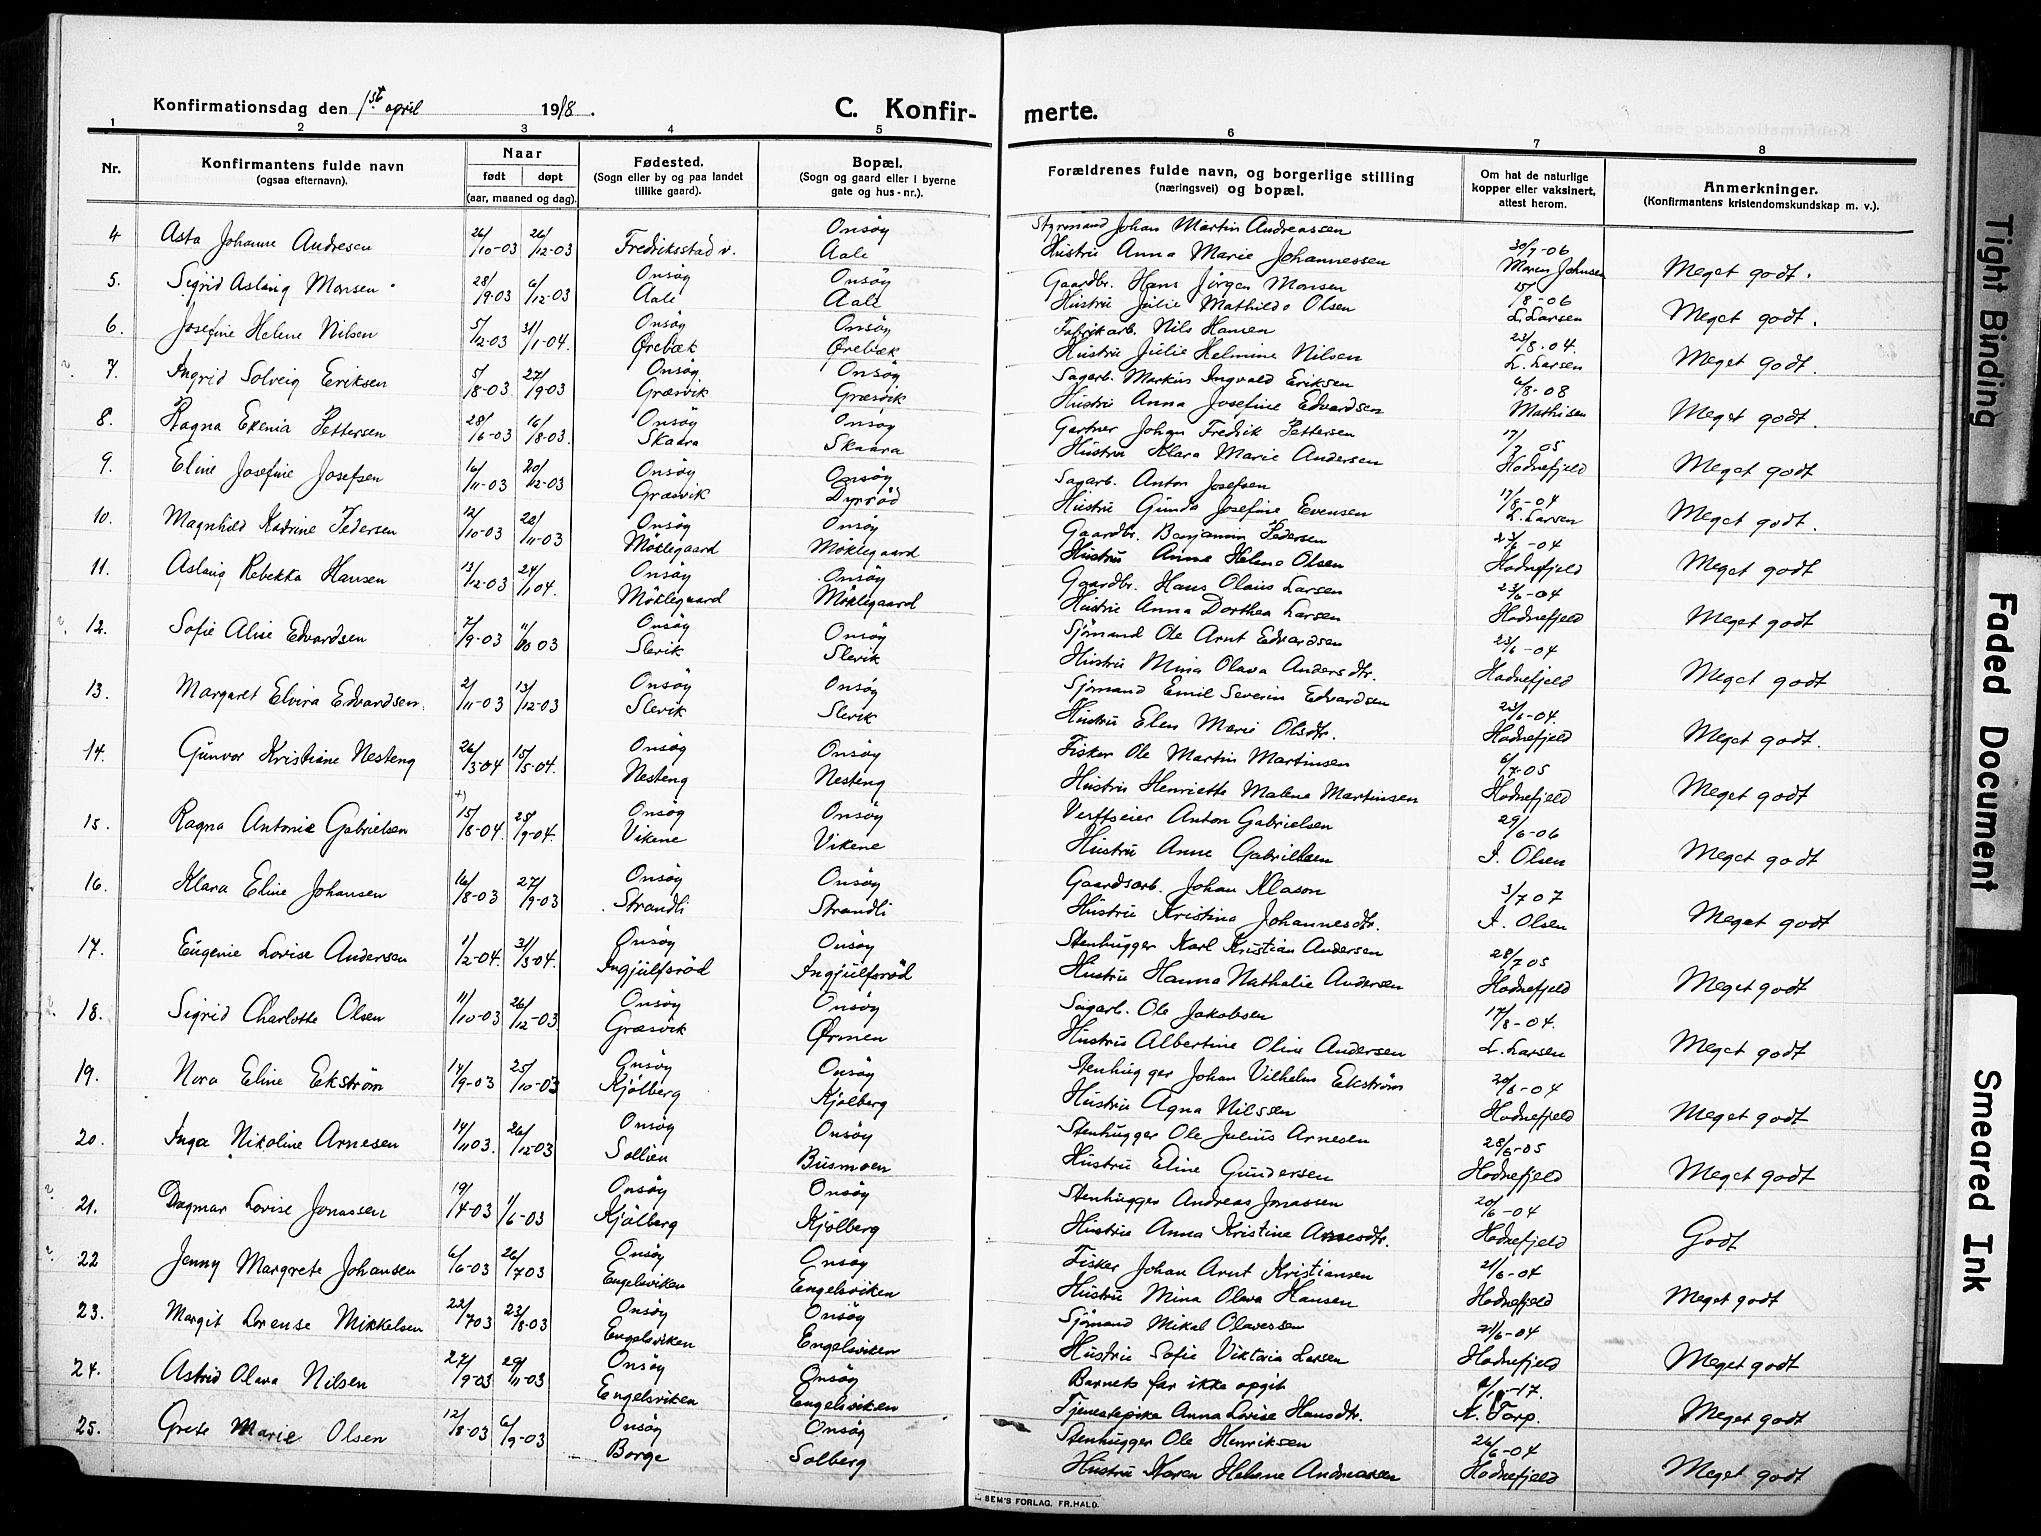 Konfirmationsdag den 1st april 1918.
C. Konfir-
merte.
1 2 3 4 5 6 7 8
Nr.
Konfirmantens fulde navn
(ogsaa efternavn).
Naar
født døpt
(aar, maaned og dag).
Fødested.
(Sogn eller by og paa landet
tillike gaard).
Bopæl.
(Sogn og gaard eller i byerne
gate og hus-nr.).
Forældrenes fulde navn, og borgerlige stilling
(næringsvei) og bopæl.
Om hat de naturlige
kopper eller vaksinert,
attest herom.
Anmerkninger.
(Konfirmantens kristendomskundskap m. v.).
4 Asta Johanne Andresen 26/10-03 26/12-03 Fredriksstad v. Onsöy Aale Styrmand Johan Martin Andreassen
Hustru Anna Marie Johannessen 30/7-06 Maren Johnsen Meget godt.
5. Sigrid Aslaug Monsen 28/9-03 6/12-03 Onsöy Aale Onsöy Aale Gaardbr. Hans Jörgen Monsen
Hustru Julie Mathilde Olsen 15/8-06 L. Larsen Meget godt.
6. Josefine Helene Nilsen 5/12-03 31/1-04. Onsöy Ørebæk Onsöy Ørebæk Fabrikarb. Nils Hansen
Hustru Julie Helmine Nilsen 23/8.04. L. Larsen Meget godt.
7. Ingrid Solveig Eriksen 5/8-03 27/9-03 Onsöy Græsvik Onsöy Græsvik Sagarb. Markus Ingvald Eriksen
Hustru Anna Josefine Edvardsen 6/8-08 Mathisen Meget godt.
8. Ragna Exenia Pettersen 28/6-03 16/8-03. Onsöy Skaara Onsöy Skaara Gartner Johan Fredrik Pettersen
Hustru Klara Marie Andersen 17/7 05 Hodnefjeld Meget godt
9. Eline Josefine Josefsen 16/11-03 20/12-03 Onsöy Græsvik Onsöy Dyrröd Sagarb. Anton Josefsen
Hustru Gunda Josefine Evensen 17/8-04 L. Larsen Meget godt.
10. Magnhild Katrine Pedersen 12/10-03 22/11-03 Onsöy Möklegaard Onsöy Möklegaard Gaardbr. Benjamin Pedersen
Hustru Anna Helene Olsen 23/6-04 Hodnefjeld Meget godt
11. Aslaug Rebekka Hansen 13/12-03 24/1 04. Onsöy Möklegaard Onsöy Möklegaard Gaardbr. Hans Olaus Larsen
Hustru Anna Dorthea Larsen 23/6-04 Hodnefjeld Meget godt
12. Sofie Alise Edvardsen 7/9-03 11/10 03 Onsöy Slevik Onsöy Slevik Sjömand Ole Arnt Edvardsen
Hustru Mina Olava Andersdtr. 23/6-04 Hodnefjeld Meget godt
13. Margaret Elvira Edvardsen. 2/11-03 13/12-03 Onsöy Slevik Onsöy Slevik Sjömand Emil Severin Edvardsen
Hustru Elen Marie Olsdtr. 23/6-04. Hodnefjeld Meget godt.
14. Gunvor Kristiane Nesteng 26/3-04 15/5-04. Onsöy Nesteng Onsöy Nesteng Fisker Ole Martin Martinsen
Hustru Henriette Malene Martinsen 6/7-05 Hodnefjeld Meget godt
15. Ragna Antonie Gabrielsen 15/8-04. 25/9-04. Onsöy Vikene Onsöy Vikene Verftseier Anton Gabrielsen
Hustru Anne Gabrielsen 29/6-06 I. Olsen Meget godt
16. Klara Eline Johansen 16/8-03 27/9-03 Onsöy Strandli Onsöy Strandli Gaardsarb. Johan Klason
Hustru Kristina Johannesdtr. 3/7 07 I. Olsen Meget godt
17. Eugenie Lovise Andersen 1/2-04. 31/3-04. Onsöy Ingjulfsröd Onsöy Ingjulfsröd Stenhugger Karl Kristian Andersen
Hustru Hanna Nathalie Andersen 28/7 05 Hodnefjeld Meget godt
18. Sigrid Charlotte Olsen 11/10-03 26/12-03 Onsöy Græsvik Onsöy Ørmen Sagarb. Ole Jakobsen
Hustru Albertine Oline Andersen 17/8-04. L. Larsen Meget godt
19. Nora Eline Ekström 14/9-03 25/10-03 Onsöy Kjölberg Onsöy Kjölberg Stenhugger Johan Vilhelm Ekström
Hustru Agna Nilssen 20/6-04 Hodnefjeld Meget godt
20. Inga Nikoline Arnesen 14/11 03. 26/12-03 Onsöy Sollien Onsöy Busmoen Stenhugger Ole Julius Arnesen
Hustru Eline Gundersen 28/6-05 Hodnefjeld Meget godt
21. Dagmar Lovise Jonassen 19/4-03 1/6-03 Onsöy Kjölberg Onsöy Kjölberg Stenhugger Andreas Jonassen
Hustru Anna Kristine Arnesdtr. 20/6-04 Hodnefjeld Godt
22 Jenny Margrete Johansen 6/6-03 26/7 03 Onsöy Engelsviken Onsöy Engelsviken Fisker Johan Arnt Kristiansen
Hustru Mina Olava Hansen 21/6-04 Hodnefjeld Meget godt
23. Margit Lorense Mikkelsen 22/7 03 23/8-03 Onsöy Engelsviken Onsöy Engelsviken Sjömand Mikal Olavessen
Hustru Sofie Viktoria Larsen 21/6-04 Hodnefjeld Meget godt
24. Astrid Olava Nilsen 27/9-03 29/11-03 Onsöy Engelsviken Onsöy Engelsviken Barnets far ikke opgit
Tjenestepike Anna Lovise Hansdtr. -17. N. Torp. Meget godt
25. Grete Marie Olsen 12/8-03 6/9-03 Onsöy Borge Onsöy Solberg Stenhugger Ole Henriksen
Hustru Karen Helene Andreassen 26/6-04 Hodnefjeld Meget godt
SEM'S FORLAG, FR.HALD.
Tight Binding
Faded Document
Smeared Ink